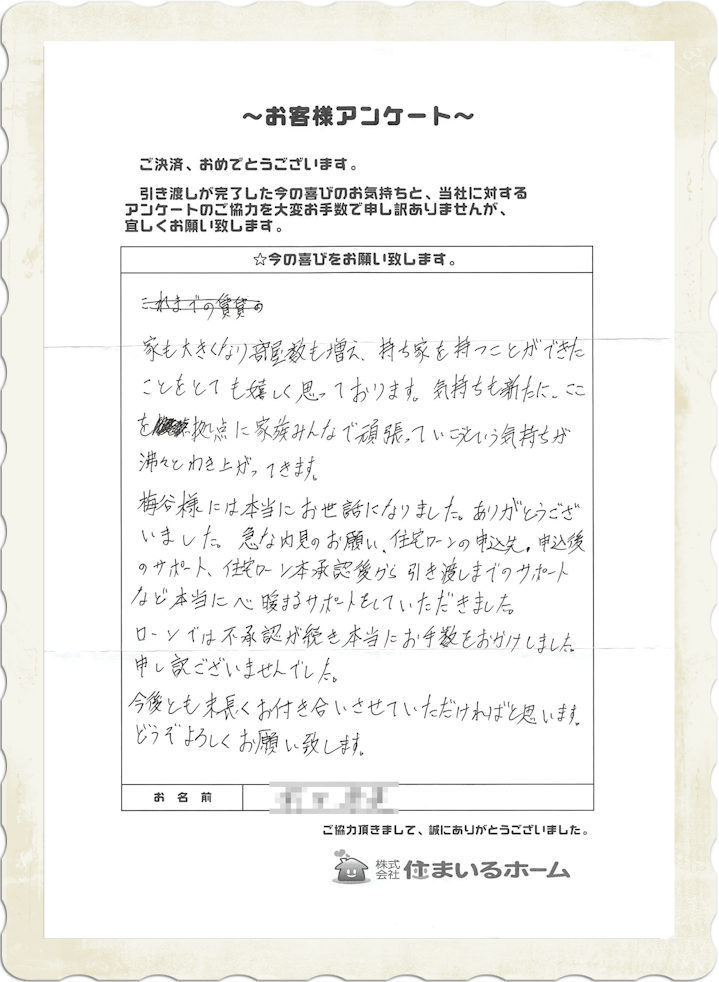 ～お客様アンケート～
ご決済、おめでとうございます。
引き渡しが完了した今の喜びのお気持ちと、当社に対する
アンケートのご協力を大変お手数で申し訳ありませんが、
宜しくお願い致します。
☆今の喜びをお願い致します。
これまでの賃貸の
家も大きくなり部屋数も増え、持ち家を持つことができた
ことをとても嬉しく思っております。気持ちも新たに、ここ
を拠点に家族みんなで頑張っていこうという気持ちが
沸々とわき上がってきます。
梅谷様には本当にお世話になりました。ありがとうござ
いました。急な内見のお願い、住宅ローンの申込先、申込後
のサポート、住宅ローン本承認後から引き渡しまでのサポート
など本当に心暖まるサポートをしていただきました。
ローンでは不承認が続き本当にお手数をおかけしました。
申し訳ございませんでした。
今後とも末長くお付き合いさせていただければと思います。
どうぞよろしくお願い致します。
お名前
ご協力頂きまして、誠にありがとうございました。
株式会社 住まいるホーム